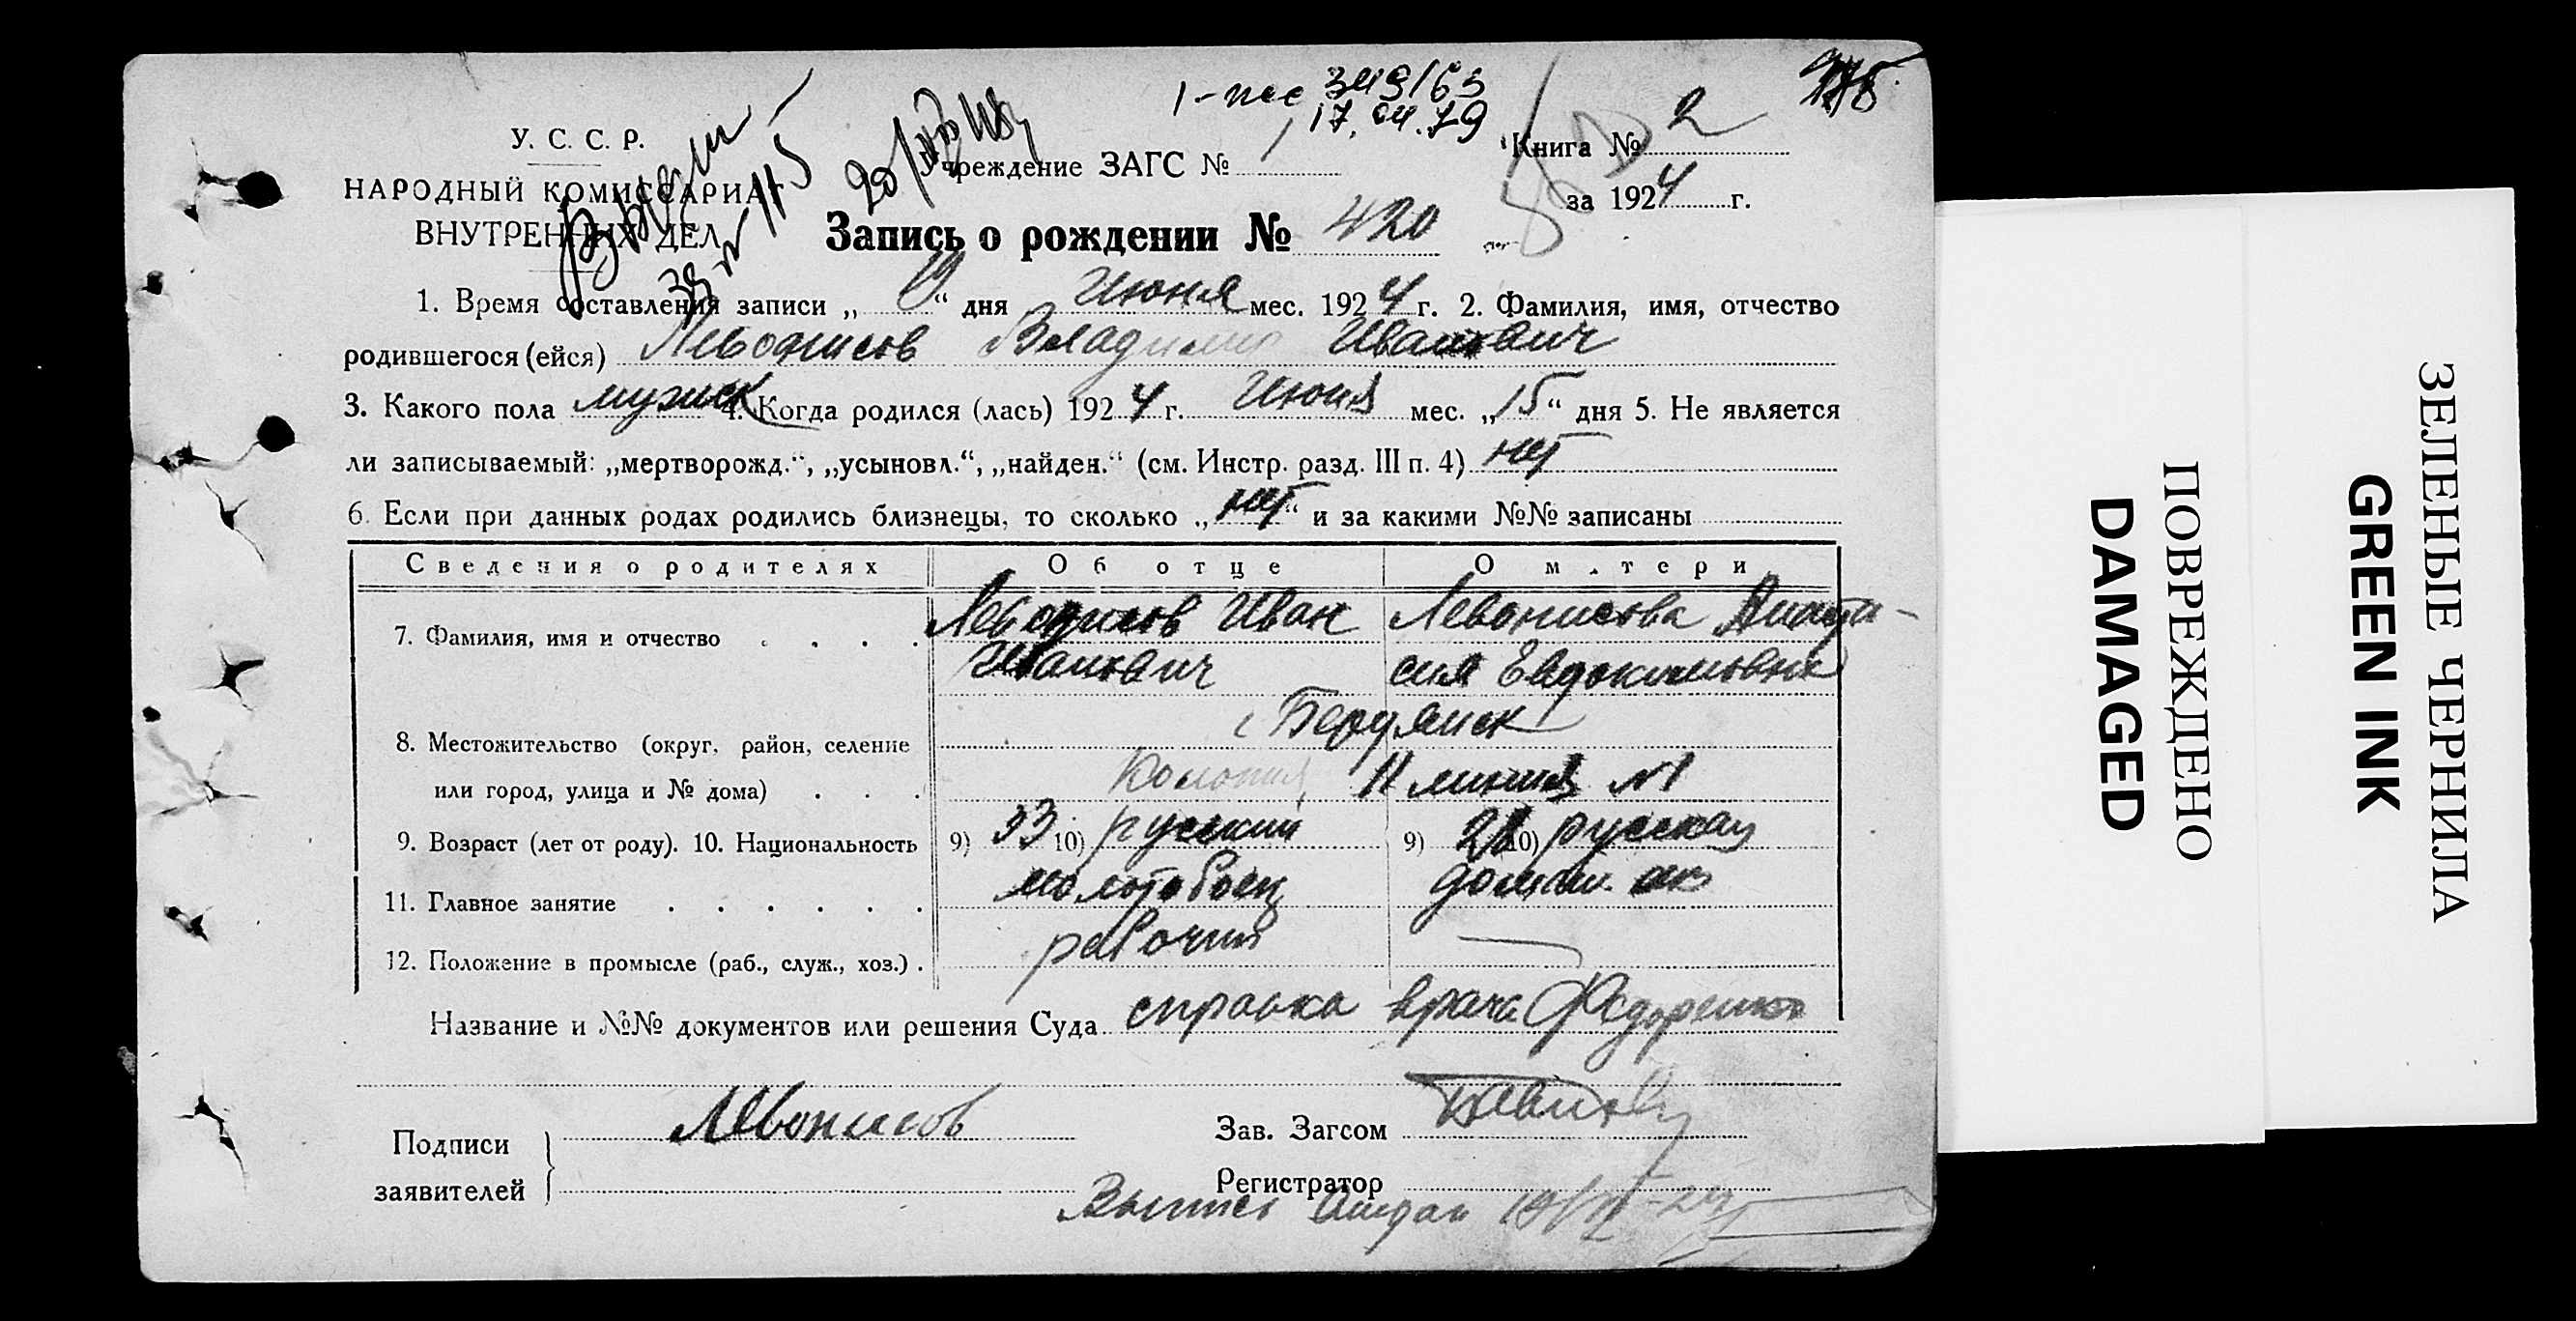 349163
17.04.79
У. С. С. Р.
НАРОДНЫЙ КОМИССАРИАТ
ВНУТРЕННИХ ДЕЛ
Учреждение ЗАГС №
Книга № 2
за 1924 г.
Запись о рождении № 420
1. Время составления записи „ 19 “ дня Июня мес. 1924 г. 2. Фамилия, имя, отчество
родившегося (ейся) Левонисов Владимир Иванович
3. Какого пола мужск 4. Когда родился (лась) 1924 г. Июня мес. „15“ дня 5. Не является
ли записываемый: „мертворожд.“, „усыновл.“, „найден.“ (см. Инстр. разд. III п. 4) нет
6. Если при данных родах родились близнецы, то сколько „нет“ и за какими №№ записаны
Сведения о родителях Об отце О матери
7. Фамилия, имя и отчество . . . . Левонисов Иван Левонисова Анаста-
Иванович сия Евдокимовна
Бердянск
8. Местожительство (округ, район, селение
или город, улица и № дома) . . . Колония 11 линия №1
9. Возраст (лет от роду). 10. Национальность 9) 33 10) русский 9) 28 10) русская
11. Главное занятие . . . . . . молотобоец домаш. хоз
12. Положение в промысле (раб., служ., хоз.) . рабочий —
Название и №№ документов или решения Суда справка врача Федоренко
Подписи
заявителей
Левонисов
Зав. Загсом
Регистратор
Выпись выдан
ПОВРЕЖДЕНО
DAMAGED
ЗЕЛЕНЫЕ ЧЕРНИЛА
GREEN INK